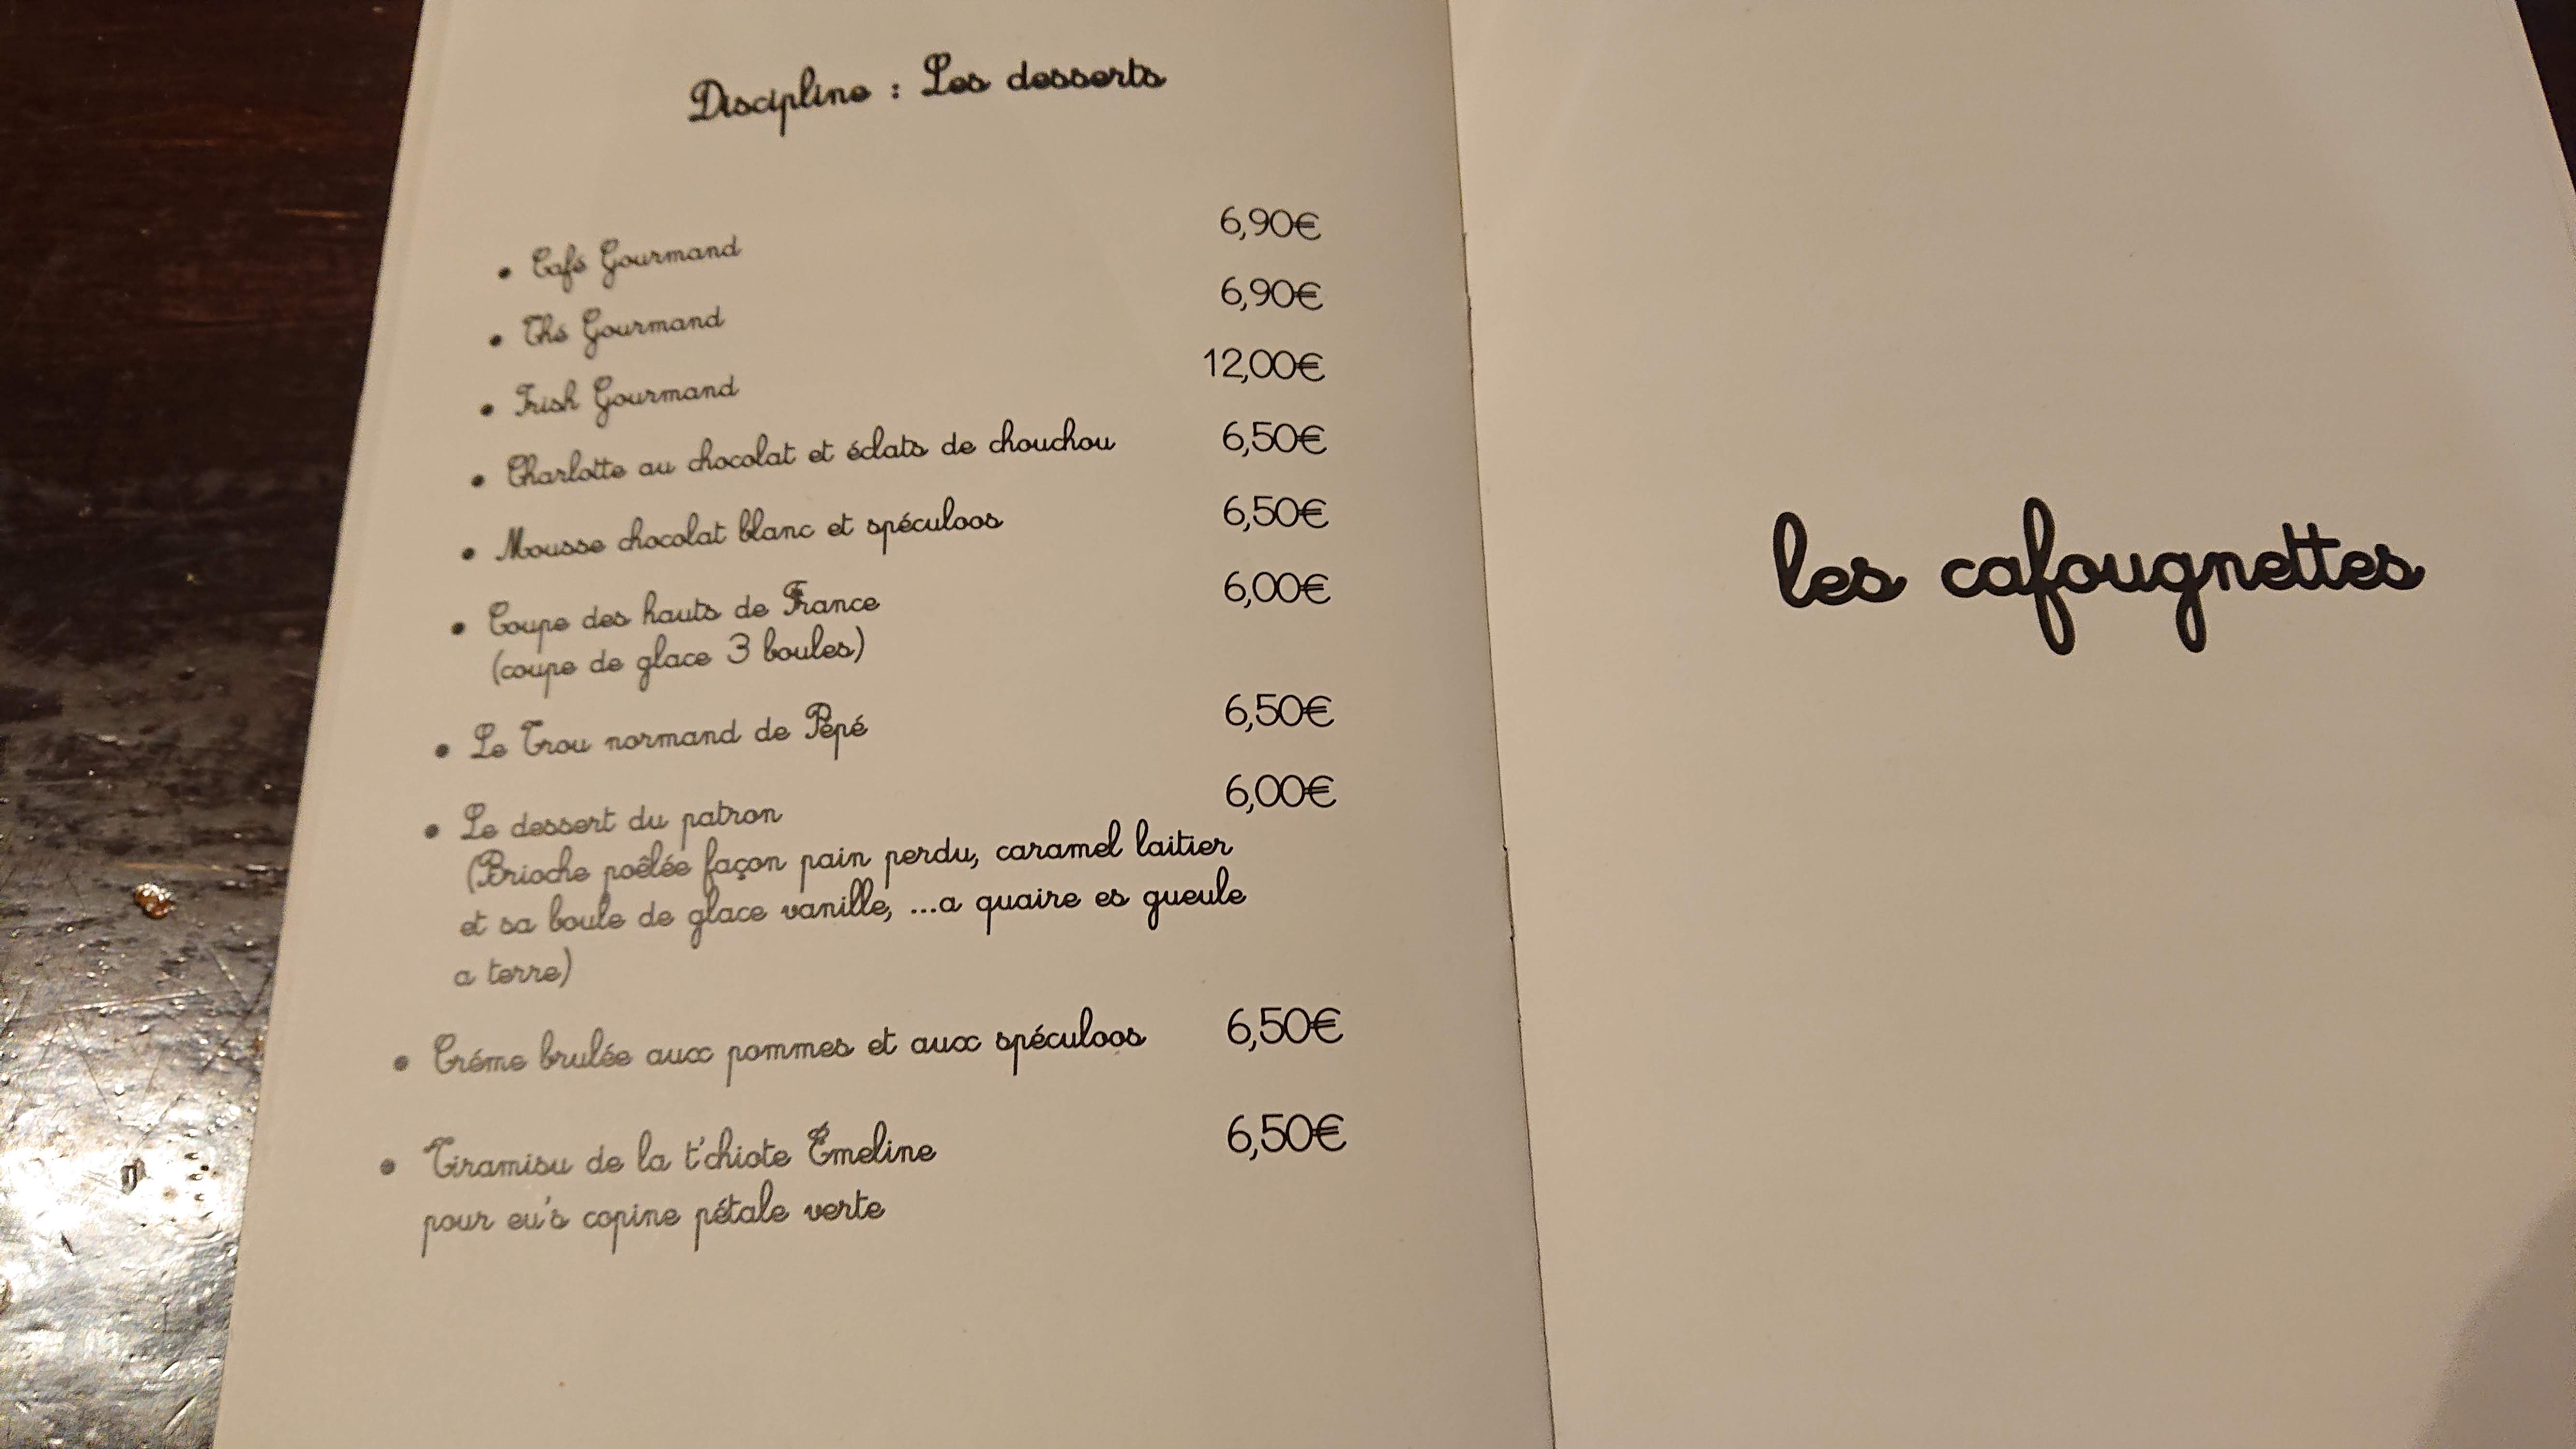 Discipline : Les desserts
• Café Gourmand 6,90€
• Thé Gourmand 6,90€
• Irish Gourmand 12,00€
• Charlotte au chocolat et éclats de chouchou 6,50€
• Mousse chocolat blanc et spéculoos 6,50€
• Coupe des hauts de France 6,00€
(coupe de glace 3 boules)
• Le Trou normand de Pépé 6,50€
• Le dessert du patron 6,00€
(Brioche poêlée façon pain perdu, caramel laitier
et sa boule de glace vanille, ...a quaire es gueule
a terre)
• Créme brulée aux pommes et aux spéculoos 6,50€
• Tiramisu de la t'chiote Émeline 6,50€
pour eu's copine pétale verte
les cafougnettes